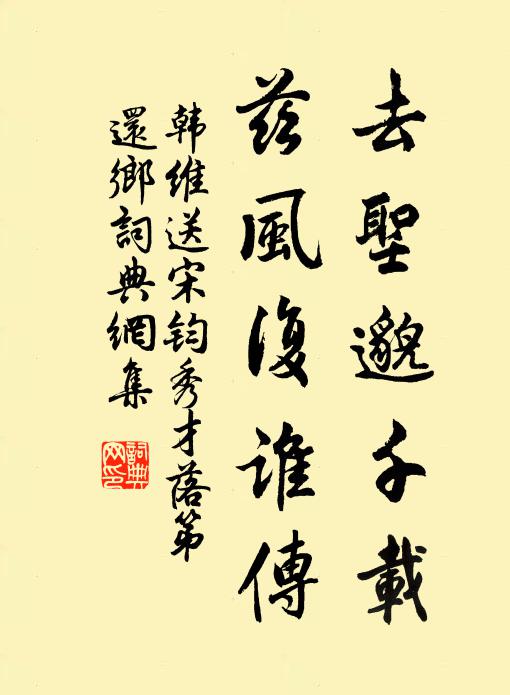 去聖邈千載
茲風復誰傳
韓維送宋鈞秀才落第
還鄉詞典網集
詞典
网印